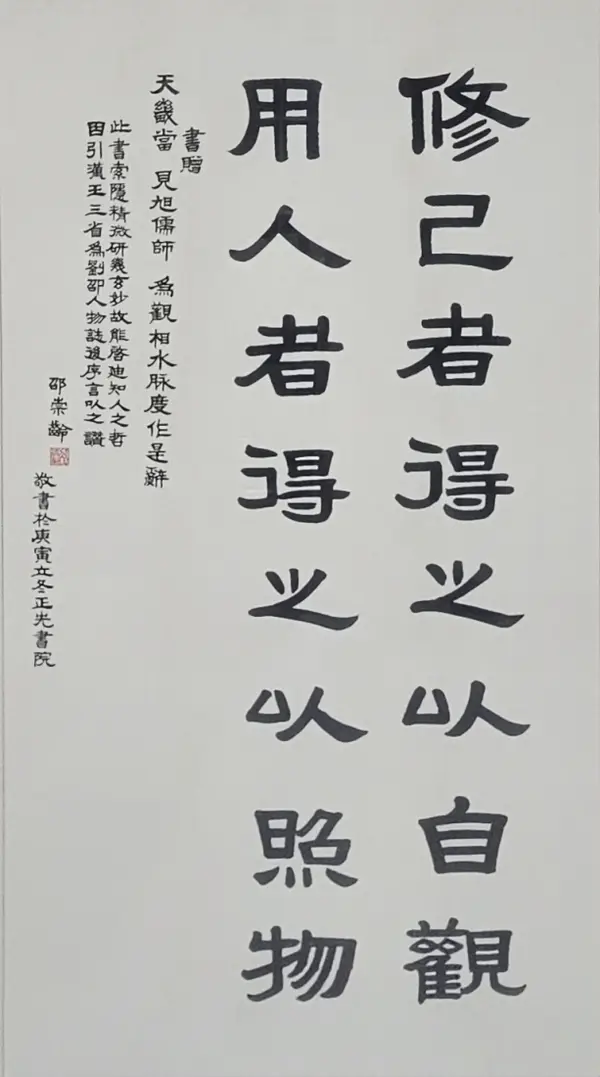 修己者得之以自觀
用人者得之以照物
書贈
天畿當 見旭儒師 為觀相水脉度作是辭
此書索隱精微研幾玄妙故能啓迪知人之者
因引漢王三省為劉邵人物誌後序言以之讚
邵崇齡
敬書於庚寅立冬正光書院